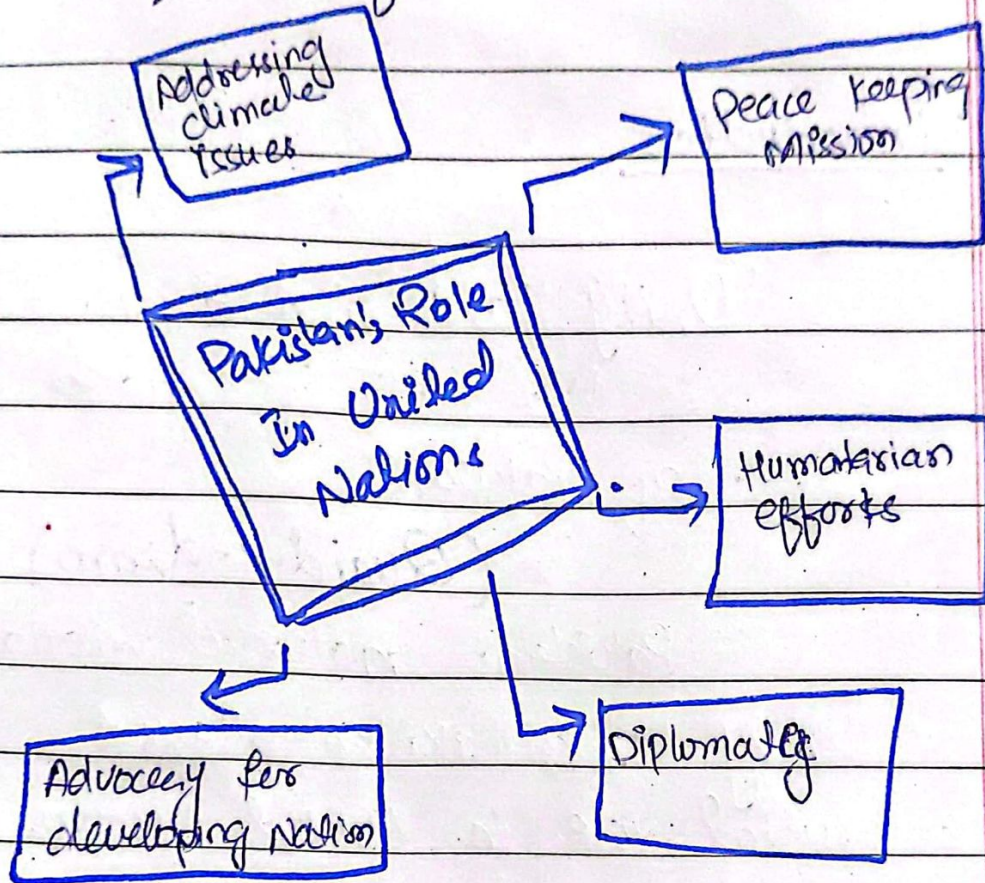 Addressing
climate
issues
Peace Keeping
Mission
Pakistan's Role
In United
Nations
Humatarian
efforts
Advocacy for
developing Nation
Diplomaty